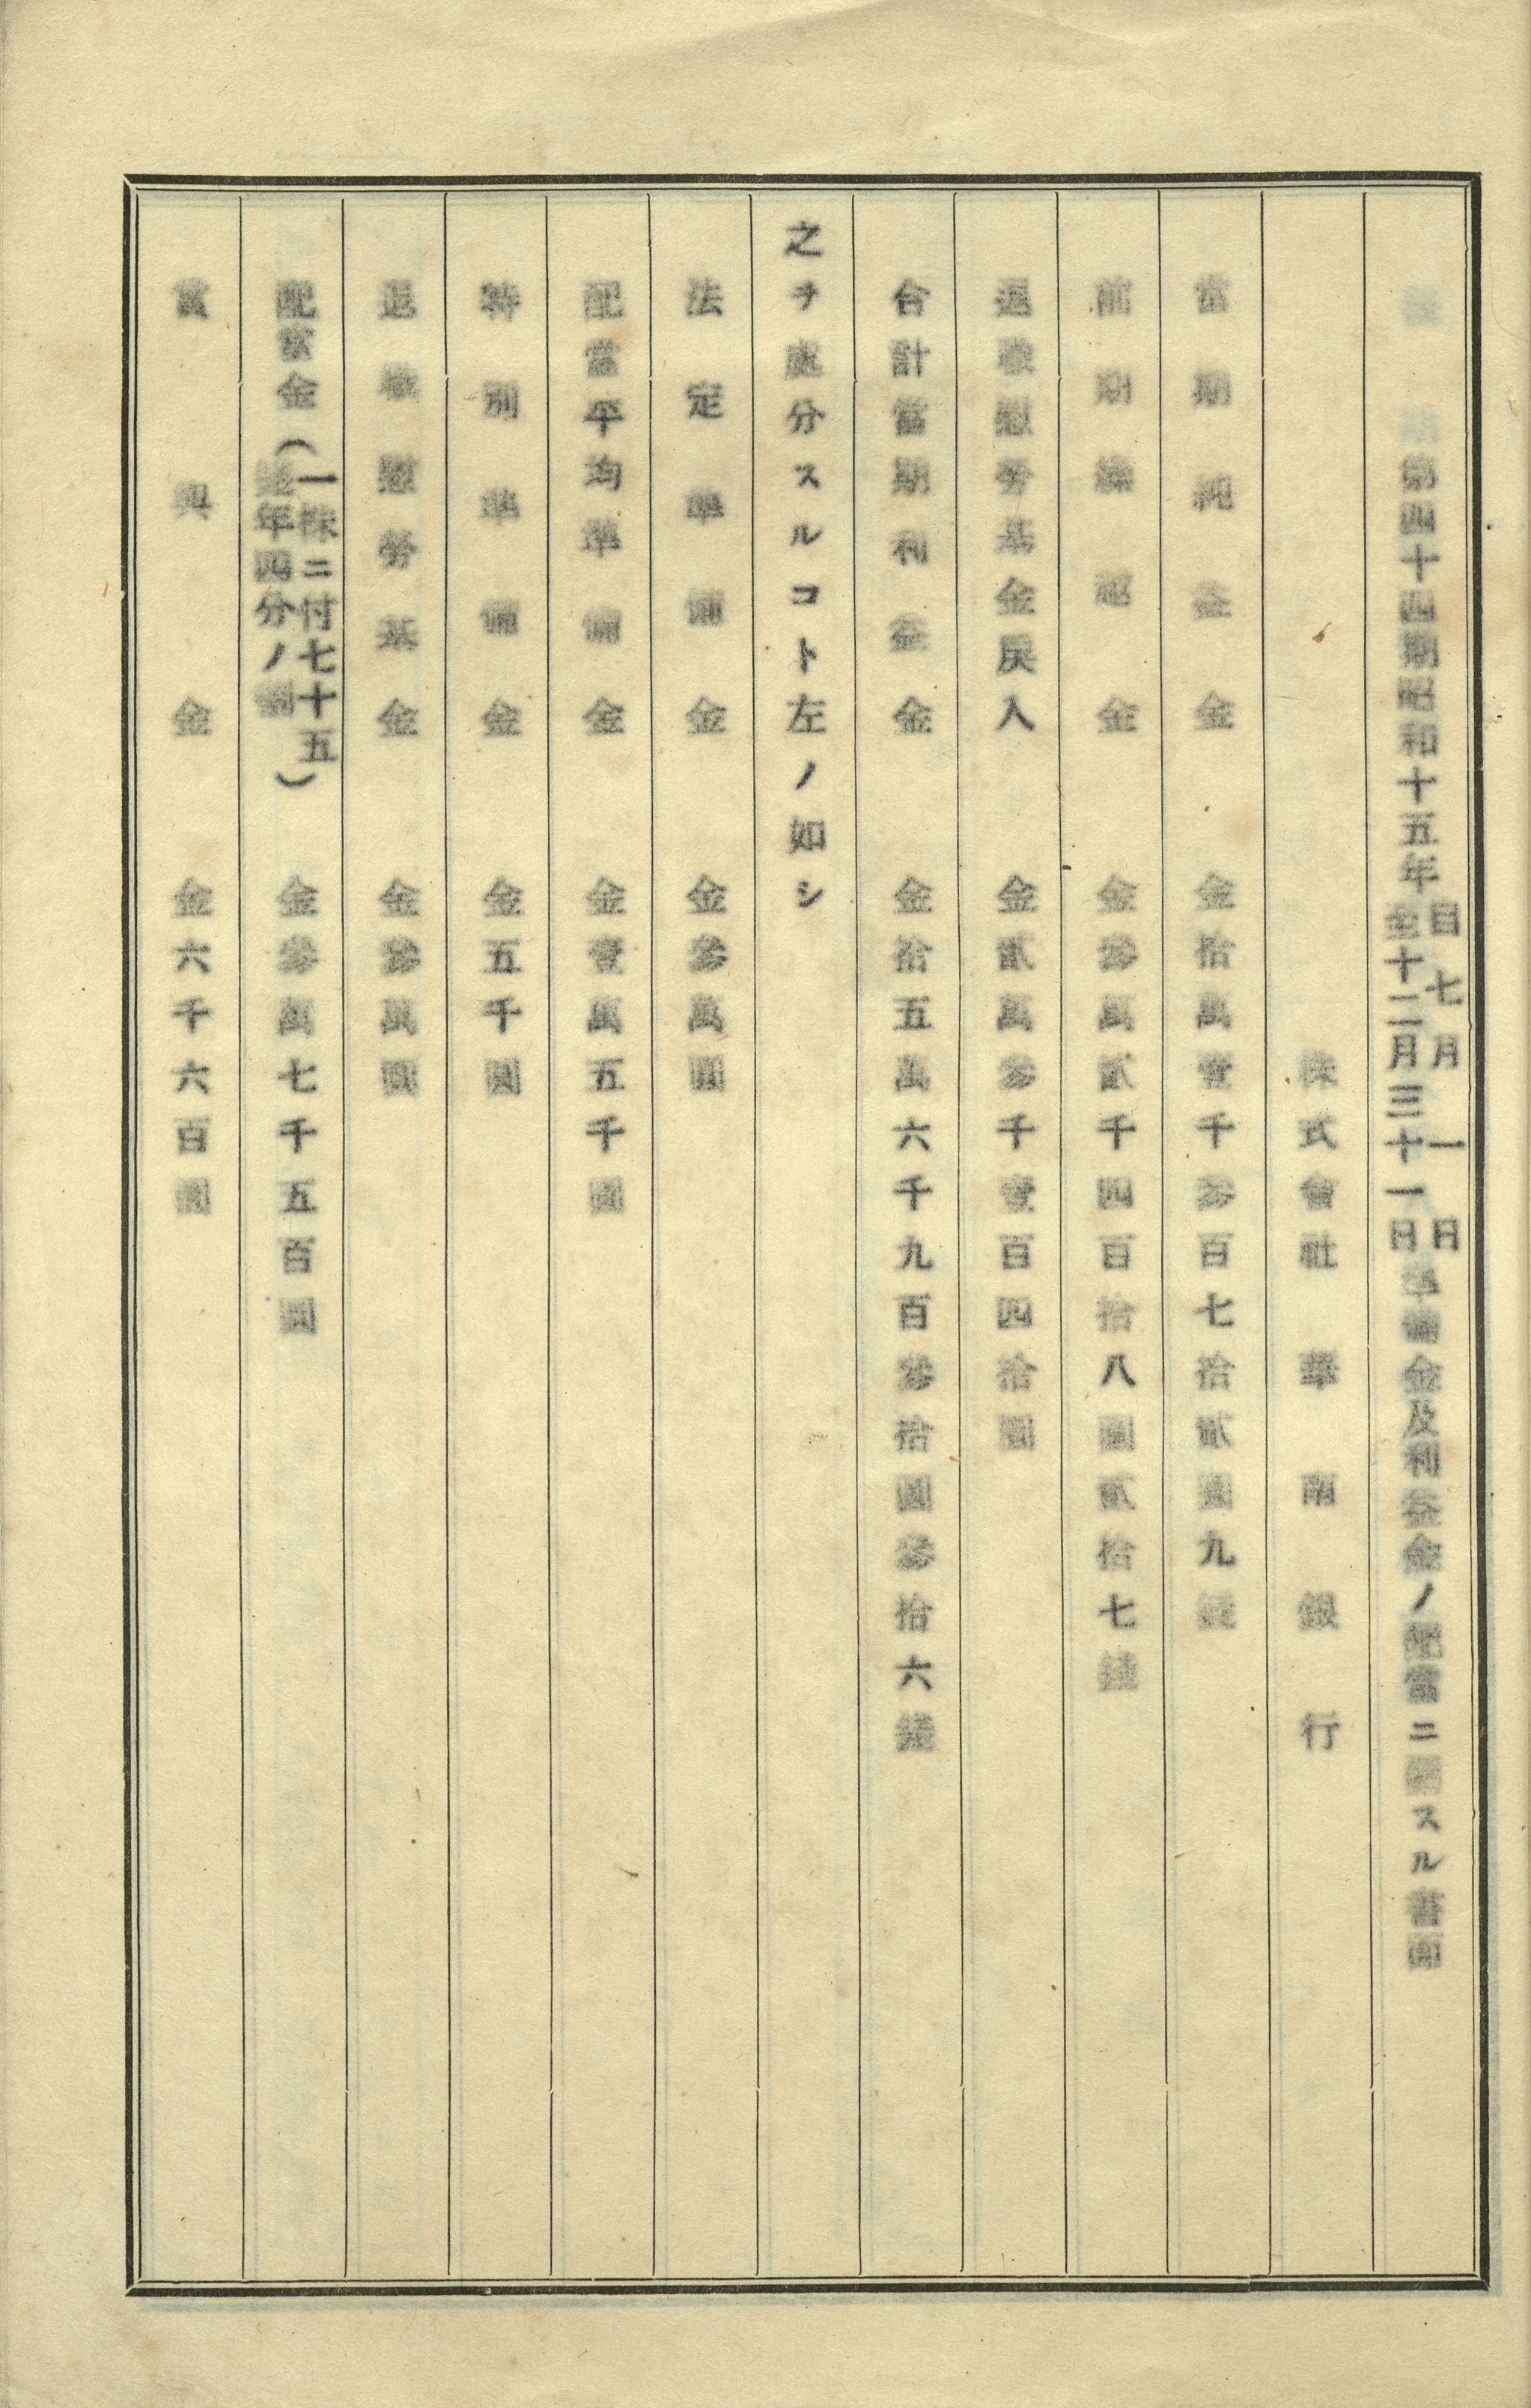 第四十四期昭和十五年自七月一日至十二月三十一日準備金及利益金ノ配當ニ關スル書面
株式會社華南銀行
當期純益金　金拾萬壹千參百七拾貳圓九錢
前期繰越金　金參萬貳千四百拾八圓貳拾七錢
退職慰勞基金戾入　金貳萬參千壹百四拾圓
合計當期利益金　金拾五萬六千九百參拾圓參拾六錢
之ヲ處分スルコト左ノ如シ
法定準備金　金參萬圓
配當平均準備金　金壹萬五千圓
特別準備金　金五千圓
退職慰勞基金　金參萬圓
配當金（一株ニ付七十五年四分ノ割）　金參萬七千五百圓
賞與金　金六千六百圓